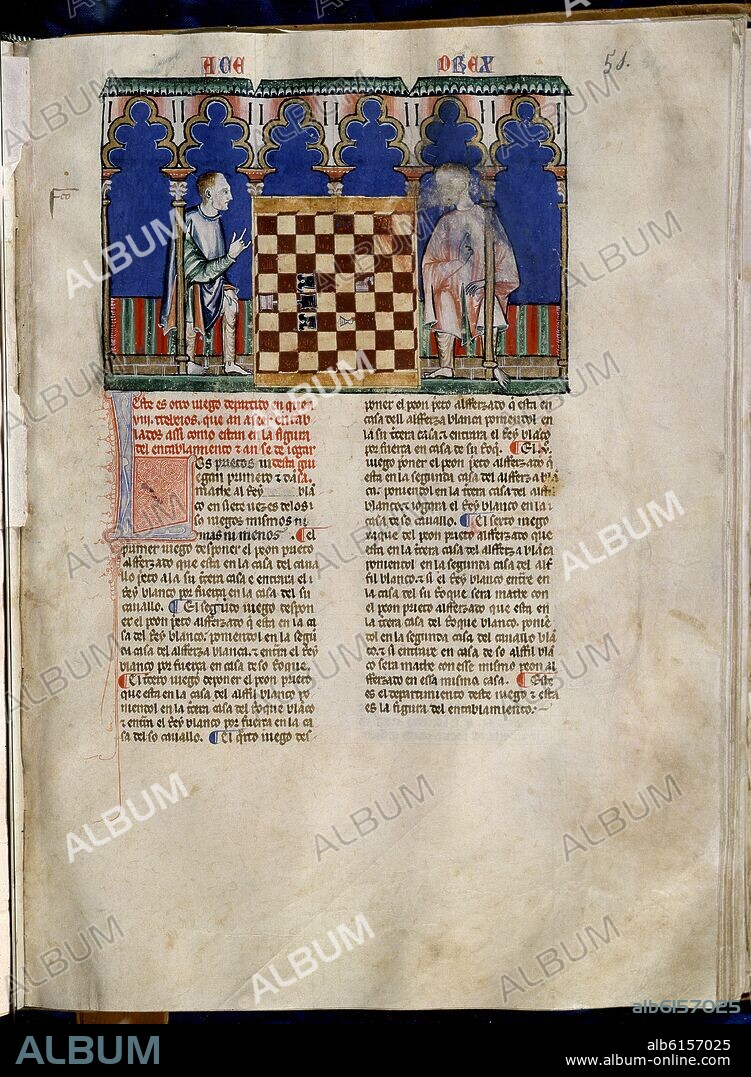 AOE
DREX
51.
Este es otro iuego departido en que a
viii. trebeios. que an a seer entab
lados assi como estan en la figura
del entablamiento & an se de iogar
desta guisa.
Los prietos iu
egan primero & dan
mathe al Rey blan
co en siete uezes de los
sos iuegos mismos ni
mas ni menos. ¶ El
primer iuego de poner el peon prieto
alfferzado que esta en la casa del caua
llo prieto a la su tercera casa & entrara el
Rey blanco por fuerça en la casa del su
cauallo. ¶ El segundo iuego de pon
er el peon prieto alfferzado que esta en la ca
sa del Rey blanco: poniendol en la segun
da casa del alfferza blanca. & entra el Rey
blanco por fuerça en casa de so Roque.
¶ El tercero iuego de poner el peon prieto
que esta en la casa del alffil blanco po
niendol en la tercera casa del Roque blanco
& entra el Rey blanco por fuerça en la ca
sa del so cauallo. ¶ El quarto iuego de
poner el peon prieto alfferzado que esta en
casa dell alfferza blanca poniendol en
la su tercera casa & entrara el Rey blanco
por fuerça en casa de su Roque. ¶ El v.
iuego poner el peon prieto alfferzado que
esta en la segunda casa del alfferza blan
ca: poniendol en la tercera casa del alffil
blanco: & iogara el Rey blanco en la
casa de so cauallo. ¶ El sexto iuego
xaque del peon prieto alfferzado que
esta en la tercera casa del alfferza blanca
poniendol en la segunda casa del alf
fil blanco. & si el Rey blanco entrare en
la casa del su Roque sera mathe con
el peon prieto alfferzado que esta en
la tercera casa del Roque blanco ponien
dol en la segunda casa del cauallo blan
co. & si entrare en casa de so alffil blan
co sera mathe con esse mismo peon al
fferzado en essa misma casa. ¶ Este
es el departimiento deste iuego & esta
es la figura del entablamiento.
ALBUM
alb6157025
ALBUM
alb6157025
www.album-online.com